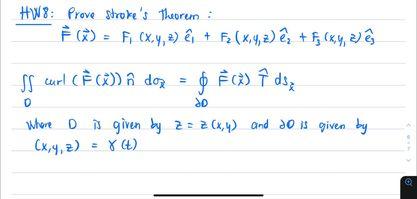 HW8: Prove Stroke's Theorem :
F⃗(x⃗) = F₁ (x,y,z) ê₁ + F₂ (x,y,z) ê₂ + F₃ (x,y,z) ê₃
∬_D curl (F⃗(x⃗)) n̂ dσ_x⃗ = ∮_∂D F⃗(x⃗) T̂ ds_x⃗
Where D is given by z = z(x,y) and ∂D is given by
(x,y,z) = γ(t)